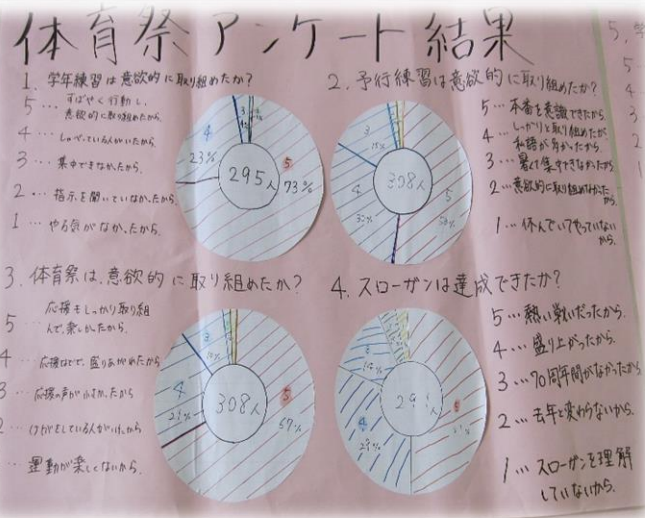 体育祭アンケート結果
1. 学年練習は意欲的に取り組めたか?
5… すばやく行動し、
意欲的に取り組めたから。
4… しゃべっている人がいたから。
3… 集中できなかったから。
2… 指示を聞いていなかったから
1… やる気がなかったから。
4
23%
5
73%
295人
2. 予行練習は意欲的に取り組めたか?
5…本番を意識できたから。
4…しっかりと取り組めたが
私語が多かったから
3…暑くて集中できなかったから
2…意欲的に取り組めなかった
から。
1…休んでいてやっていない
から。
3
4
5
308人
3. 体育祭は、意欲的に取り組めたか?
5 応援もしっかり取り組
んで、楽しかったから。
4 応援などで、盛りあがれたから
3 応援の声が小さかったから
2 …けがをしている人がいたから
… 運動が楽しくないから。
3
4
5
57%
308人
4. スローガンは達成できたか?
5…熱い戦いだったから。
4…盛り上がったから。
3…70周年間がなかったから
2…去年と変わらないから。
1…スローガンを理解
していないから。
4